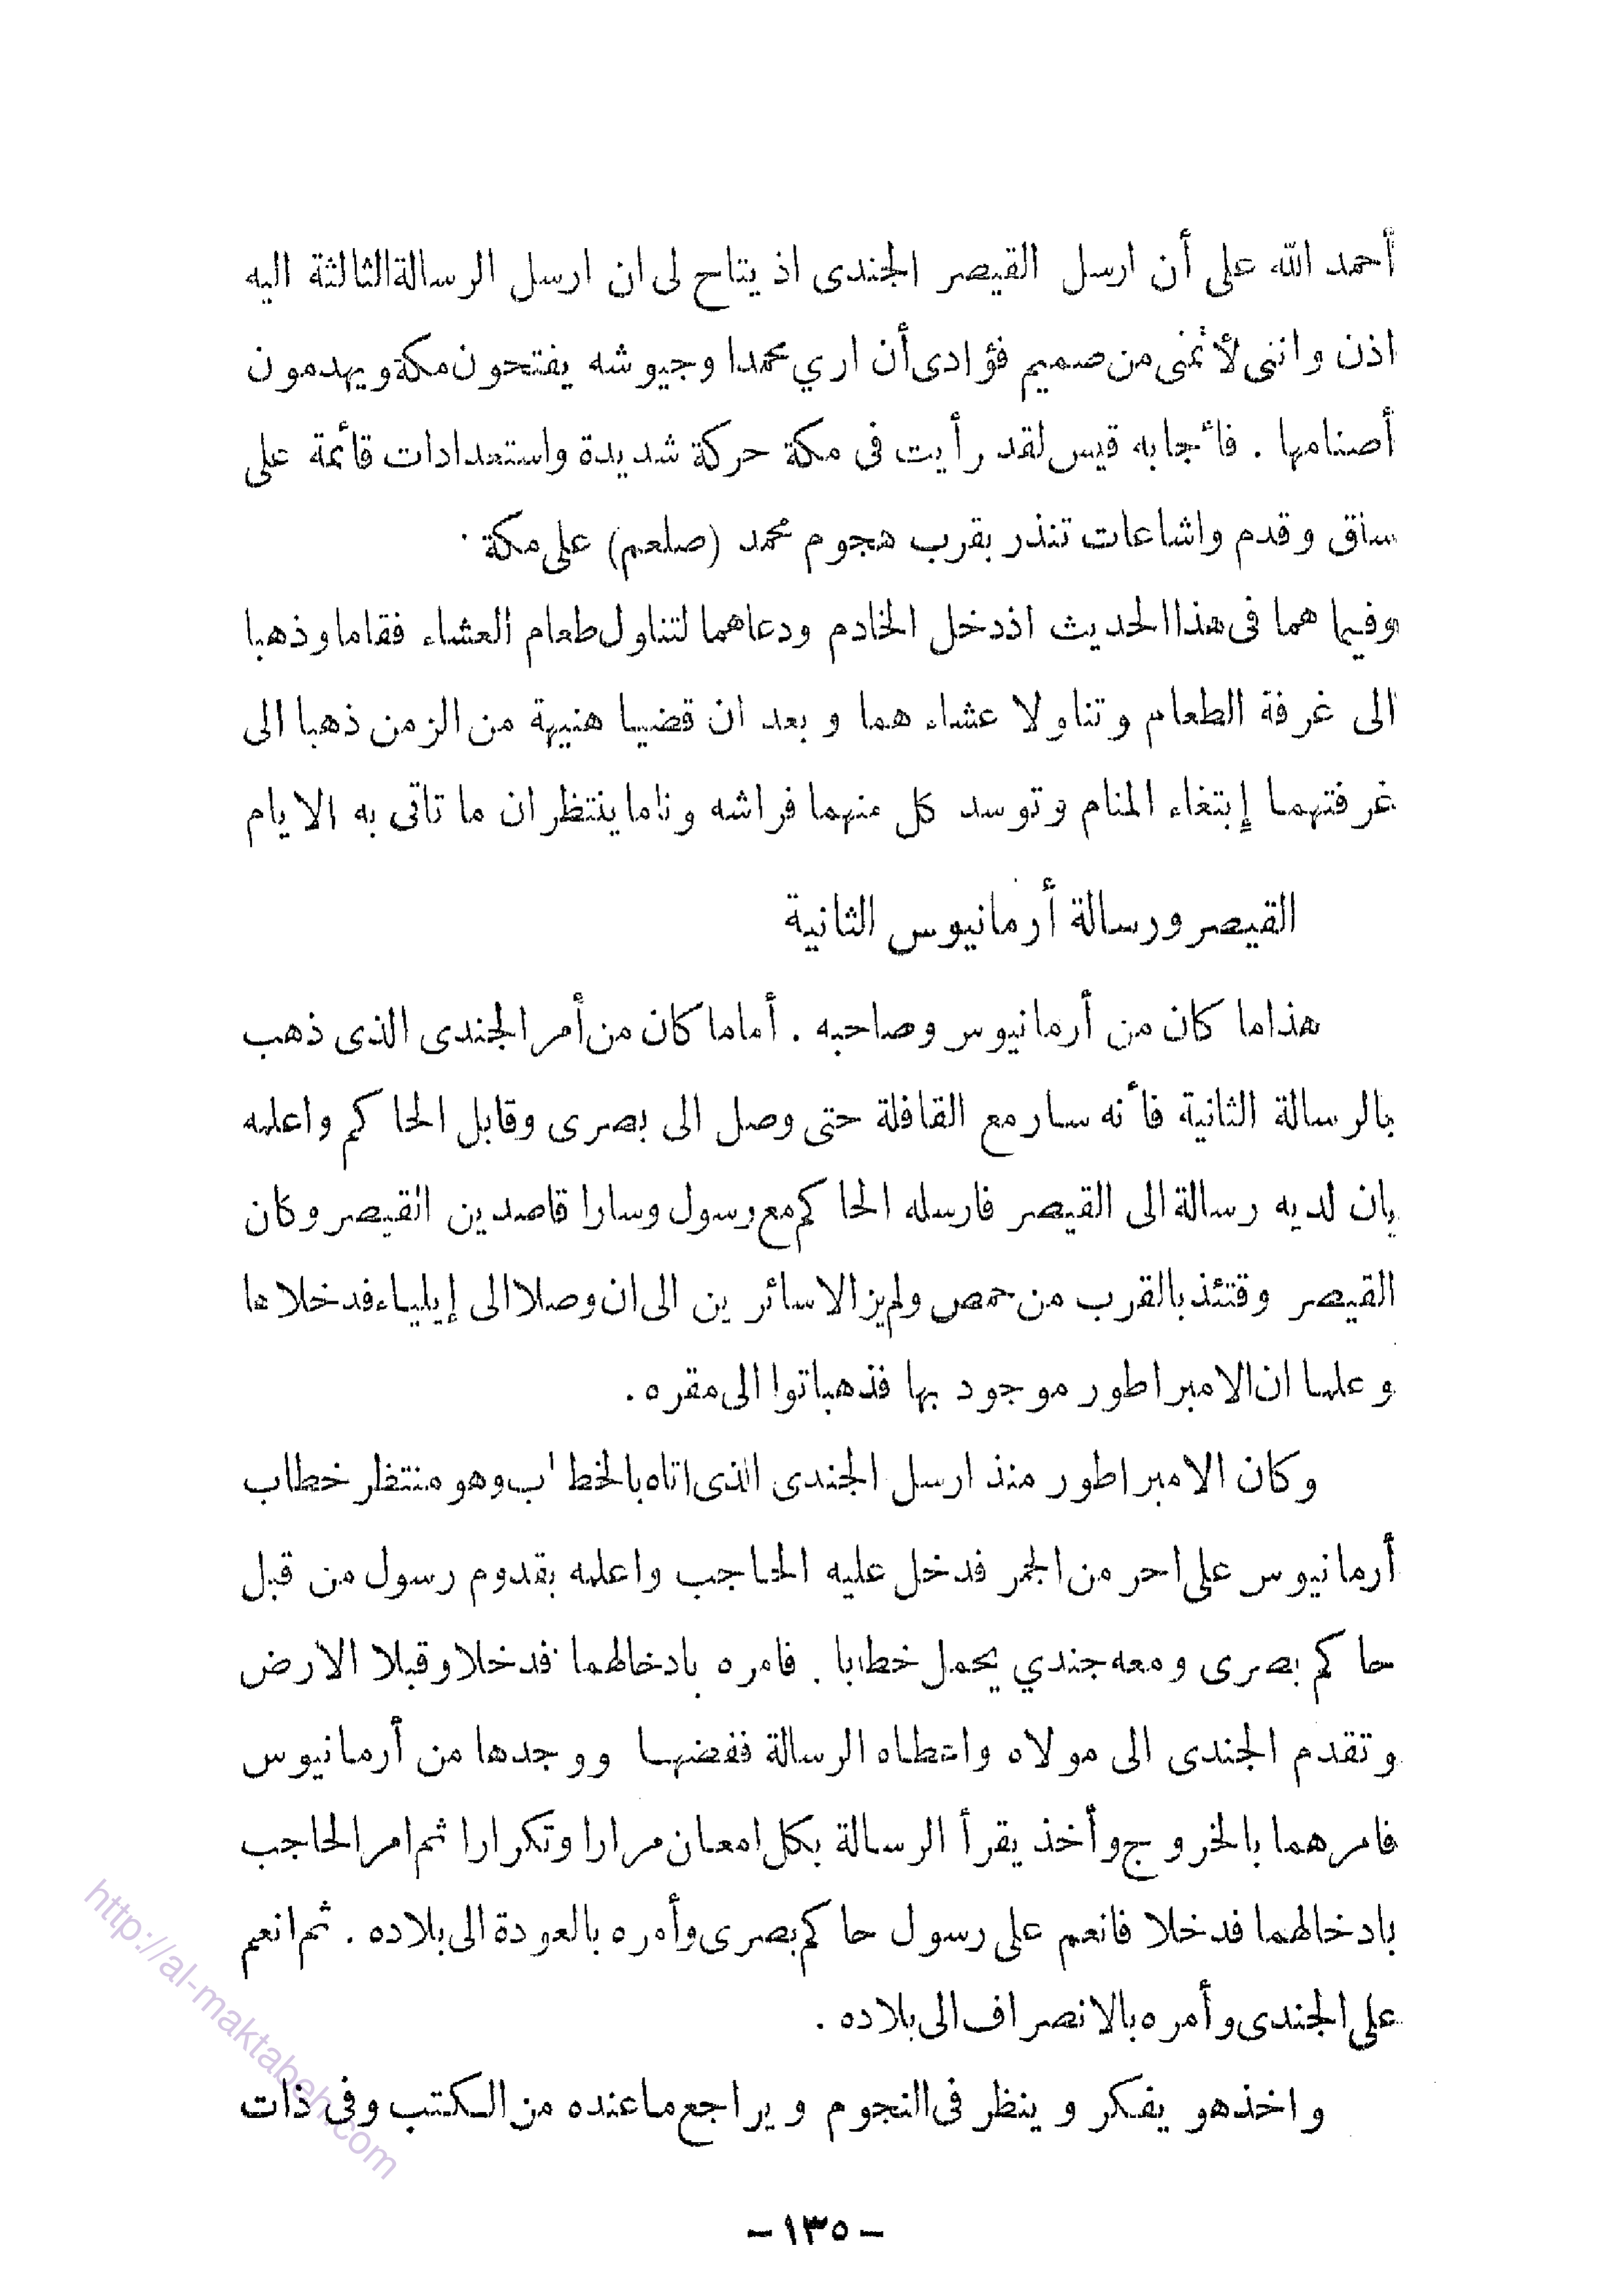 أحمد الله على أن ارسل القيصر الجندى اذ يتاح لى ان ارسل الرسالة الثالثة اليه
اذن واننى لأتمنى من صميم فؤادى أن اري محمدا وجيوشه يفتحون مكة ويهدمون
أصنامها . فأجابه قيس لقد رأيت فى مكة حركة شديدة واستعدادات قائمة على
ساق وقدم واشاعات تنذر بقرب هجوم محمد (صلعم) على مكة .
وفيما هما فى هذا الحديث اذ دخل الخادم ودعاهما لتناول طعام العشاء فقاما وذهبا
الى غرفة الطعام وتناولا عشاء هما و بعد ان قضيا هنيهة من الزمن ذهبا الى
غرفتهما إبتغاء المنام وتوسد كل منهما فراشه وناما ينتظران ما تاتى به الايام
القيصر ورسالة أرمانيوس الثانية
هذا ما كان من أرمانيوس وصاحبه . أما ما كان من أمر الجندى الذى ذهب
بالرسالة الثانية فأنه سار مع القافلة حتى وصل الى بصرى وقابل الحاكم واعلمه
بان لديه رسالة الى القيصر فارسله الحاكم مع رسول وسارا قاصدين القيصر وكان
القيصر وقتئذ بالقرب من حمص ولم يزالا سائرين الى ان وصلا الى إيلياء فدخلاها
وعلما ان الامبراطور موجود بها فذهبا توا الى مقره .
وكان الامبراطور منذ ارسل الجندى الذى اتاه بالخطاب وهو منتظر خطاب
أرمانيوس على احر من الجمر فدخل عليه الحاجب واعلمه بقدوم رسول من قبل
حاكم بصرى ومعه جندي يحمل خطابا . فامره بادخالهما فدخلا وقبلا الارض
وتقدم الجندى الى مولاه واعطاه الرسالة ففضها ووجدها من أرمانيوس
فامرهما بالخروج وأخذ يقرأ الرسالة بكل امعان مرارا وتكرارا ثم امر الحاجب
بادخالهما فدخلا فانعم على رسول حاكم بصرى وأمره بالعودة الى بلاده . ثم انعم
على الجندى وأمره بالانصراف الى بلاده .
واخذ هو يفكر و ينظر فى النجوم و يراجع ما عنده من الكتب وفى ذات
- ١٣٥ -
http://al-maktabeh.com